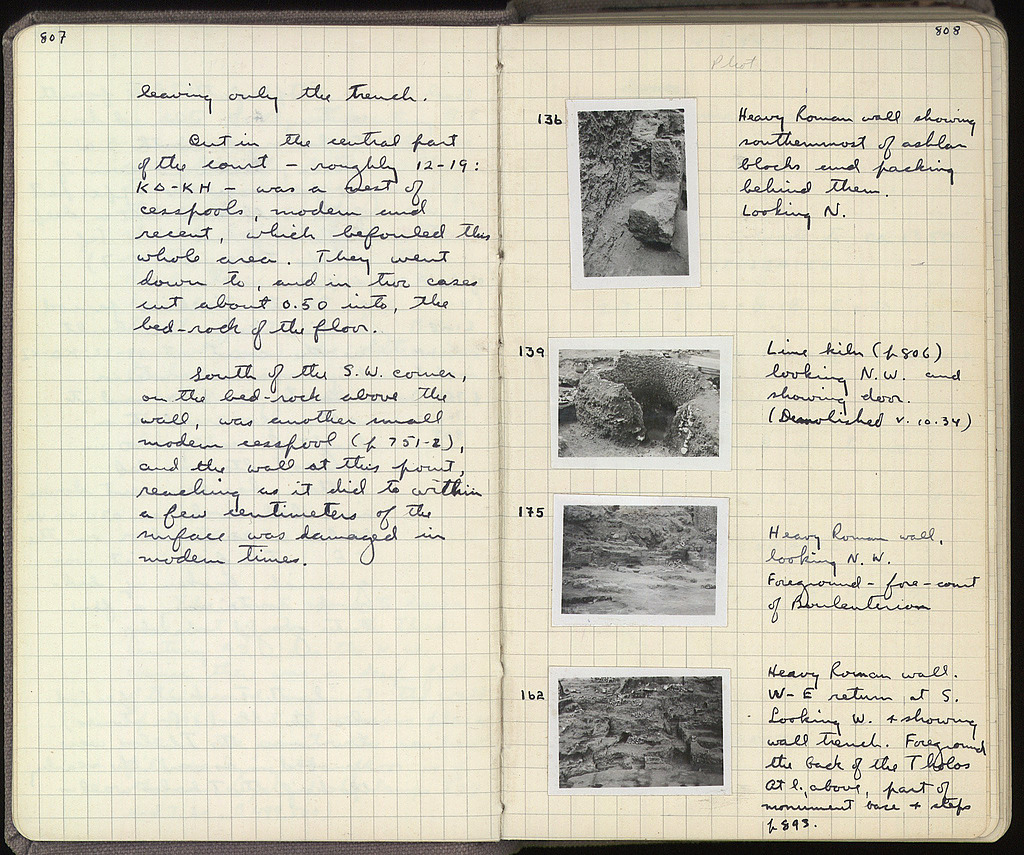 807
leaving only the trench.
But in the central part
of the court – roughly 12-19:
KΔ-KH – was a nest of
cesspools, modern and
recent, which befouled this
whole area. They went
down to, and in two cases
cut about 0.50 into, the
bed-rock of the floor.
South of the S.W. corner,
on the bed-rock above the
wall, was another small
modern cesspool (p 751-2),
and the wall at this point,
reaching as it did to within
a few centimeters of the
surface was damaged in
modern times.
808
Phot.
136
Heavy Roman wall showing
southernmost of ashlar
blocks and packing
behind them.
Looking N.
139
Lime kiln (p 806)
looking N.W. and
showing door.
(Demolished v. 10.34)
175
Heavy Roman wall,
looking N.W.
Foreground – fore-court
of Bouleuterion
162
Heavy Roman wall.
W-E return at S.
Looking W. + showing
wall trench. Foreground
the back of the Tholos
At l. above, part of
monument base + steps
p 893.